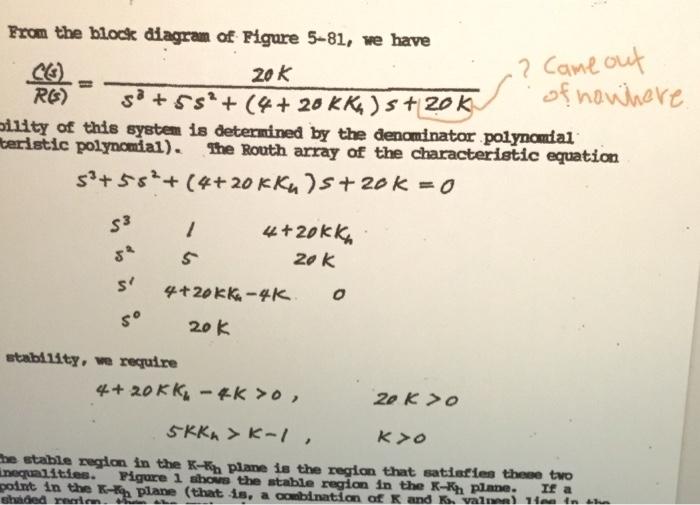 From the block diagram of Figure 5-81, we have
C(s)/R(s) = 20K / (s³ + 5s² + (4 + 20KKₕ)s + 20K)
? Came out of nowhere
bility of this system is determined by the denominator polynomial
teristic polynomial). The Routh array of the characteristic equation
s³ + 5s² + (4 + 20KKₕ)s + 20K = 0
s³ 1 4+20KKₕ
s² 5 20K
s¹ 4+20KKₕ-4K 0
s⁰ 20K
stability, we require
4 + 20KKₕ - 4K > 0, 20K > 0
5KKₕ > K - 1, K > 0
he stable region in the K-Kₕ plane is the region that satisfies these two
inequalities. Figure 1 shows the stable region in the K-Kₕ plane. If a
point in the K-Kₕ plane (that is, a combination of K and Kₕ values) lies in the
shaded region,